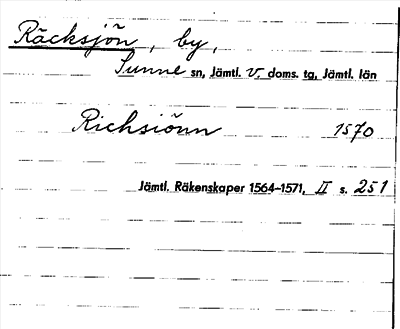 Räcksjön, by,
Sunne sn, Jämtl. V. doms. tg, Jämtl. län
Richsiönn 1570
Jämtl. Räkenskaper 1564-1571, II s. 251